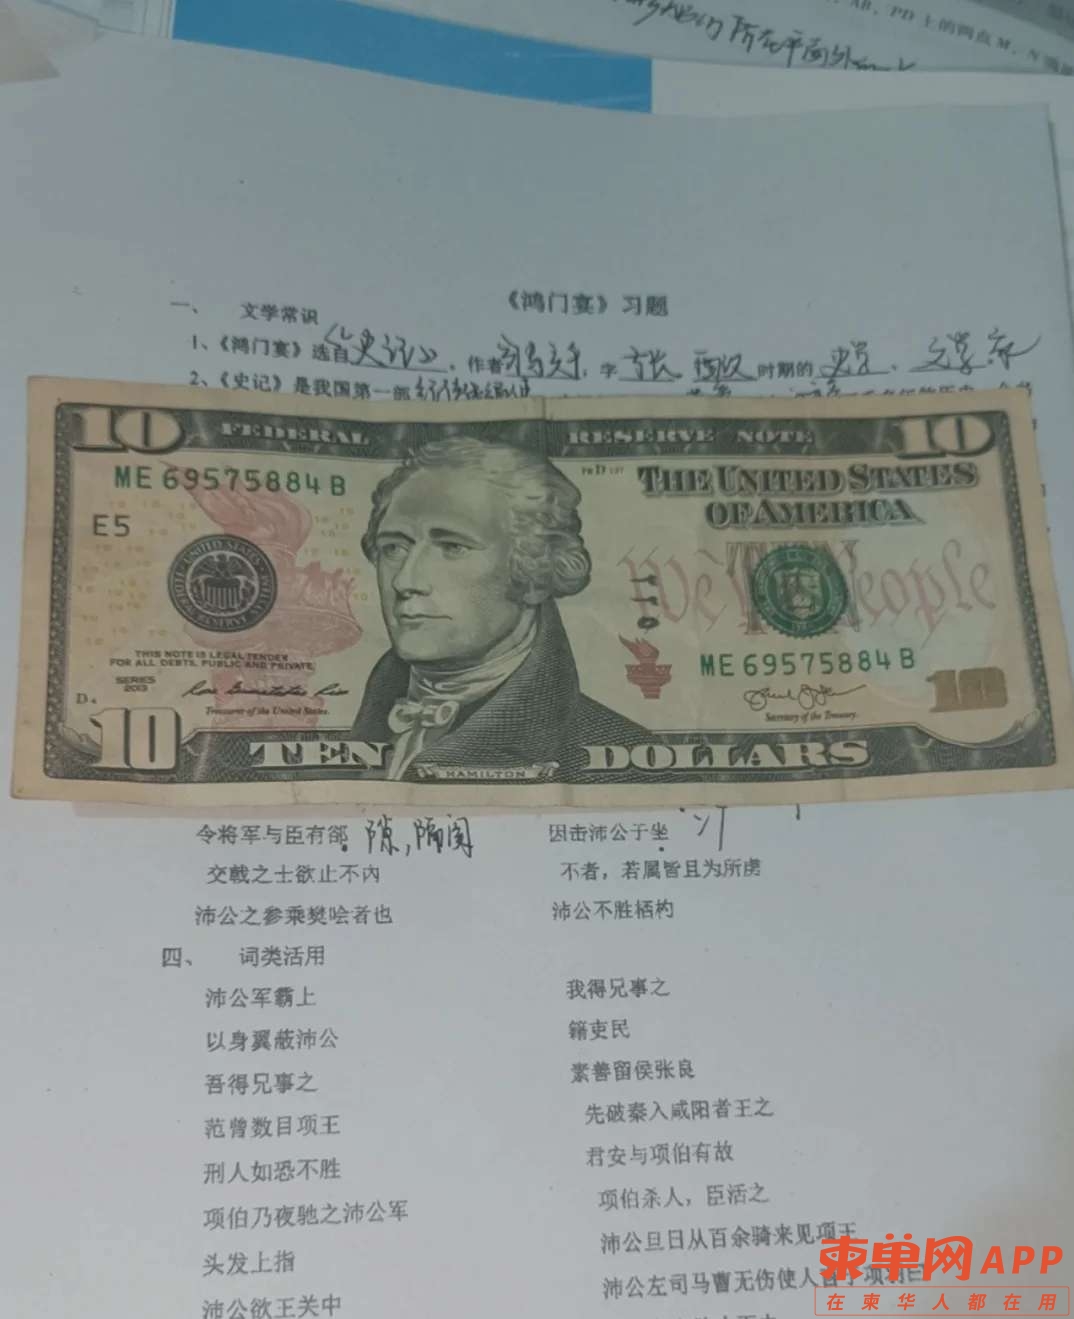 AB、PD上的两点M、N
所在平面外
《鸿门宴》习题
一、 文学常识
1、《鸿门宴》选自《史记》,作者司马迁,字子长,西汉时期的史学、文学家
2、《史记》是我国第一部纪传体通史
10 FEDERAL RESERVE NOTE 10
ME 69575884 B
THE UNITED STATES
OF AMERICA
E5
We TEN People
THIS NOTE IS LEGAL TENDER
FOR ALL DEBTS, PUBLIC AND PRIVATE
ME 69575884 B
SERIES
2013
Treasurer of the United States.
Secretary of the Treasury.
10 TEN DOLLARS
HAMILTON
令将军与臣有郤 隙,隔阂 因击沛公于坐
交戟之士欲止不内 不者,若属皆且为所虏
沛公之参乘樊哙者也 沛公不胜桮杓
四、 词类活用
沛公军霸上 我得兄事之
以身翼蔽沛公 籍吏民
吾得兄事之 素善留侯张良
范曾数目项王 先破秦入咸阳者王之
刑人如恐不胜 君安与项伯有故
项伯乃夜驰之沛公军 项伯杀人,臣活之
头发上指 沛公旦日从百余骑来见项王
沛公欲王关中 沛公左司马曹无伤使人言于项羽曰
柬单网APP
在柬华人都在用